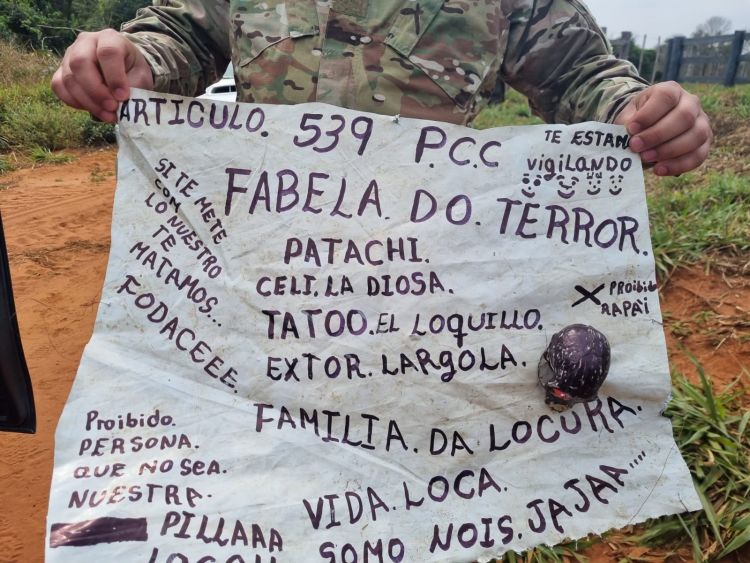 ARTICULO. 539 P.C.C
TE ESTAN
vigiLANDO
FABELA. DO. TERROR.
SI TE METE
CON
LO NUESTRO
TE
MATAMOS...
FODACEEE.
PATACHI.
CELI. LA DIOSA.
TATOO. EL LOQUILLO.
EXTOR. LARGOLA.
X PROIBIDO
RAPAI
FAMILIA. DA LOCURA.
Proibido.
PERSONA.
QUE NO SEA.
NUESTRA.
VIDA. LOCA.
PILLAAA
SOMO NOIS. JAJAA....